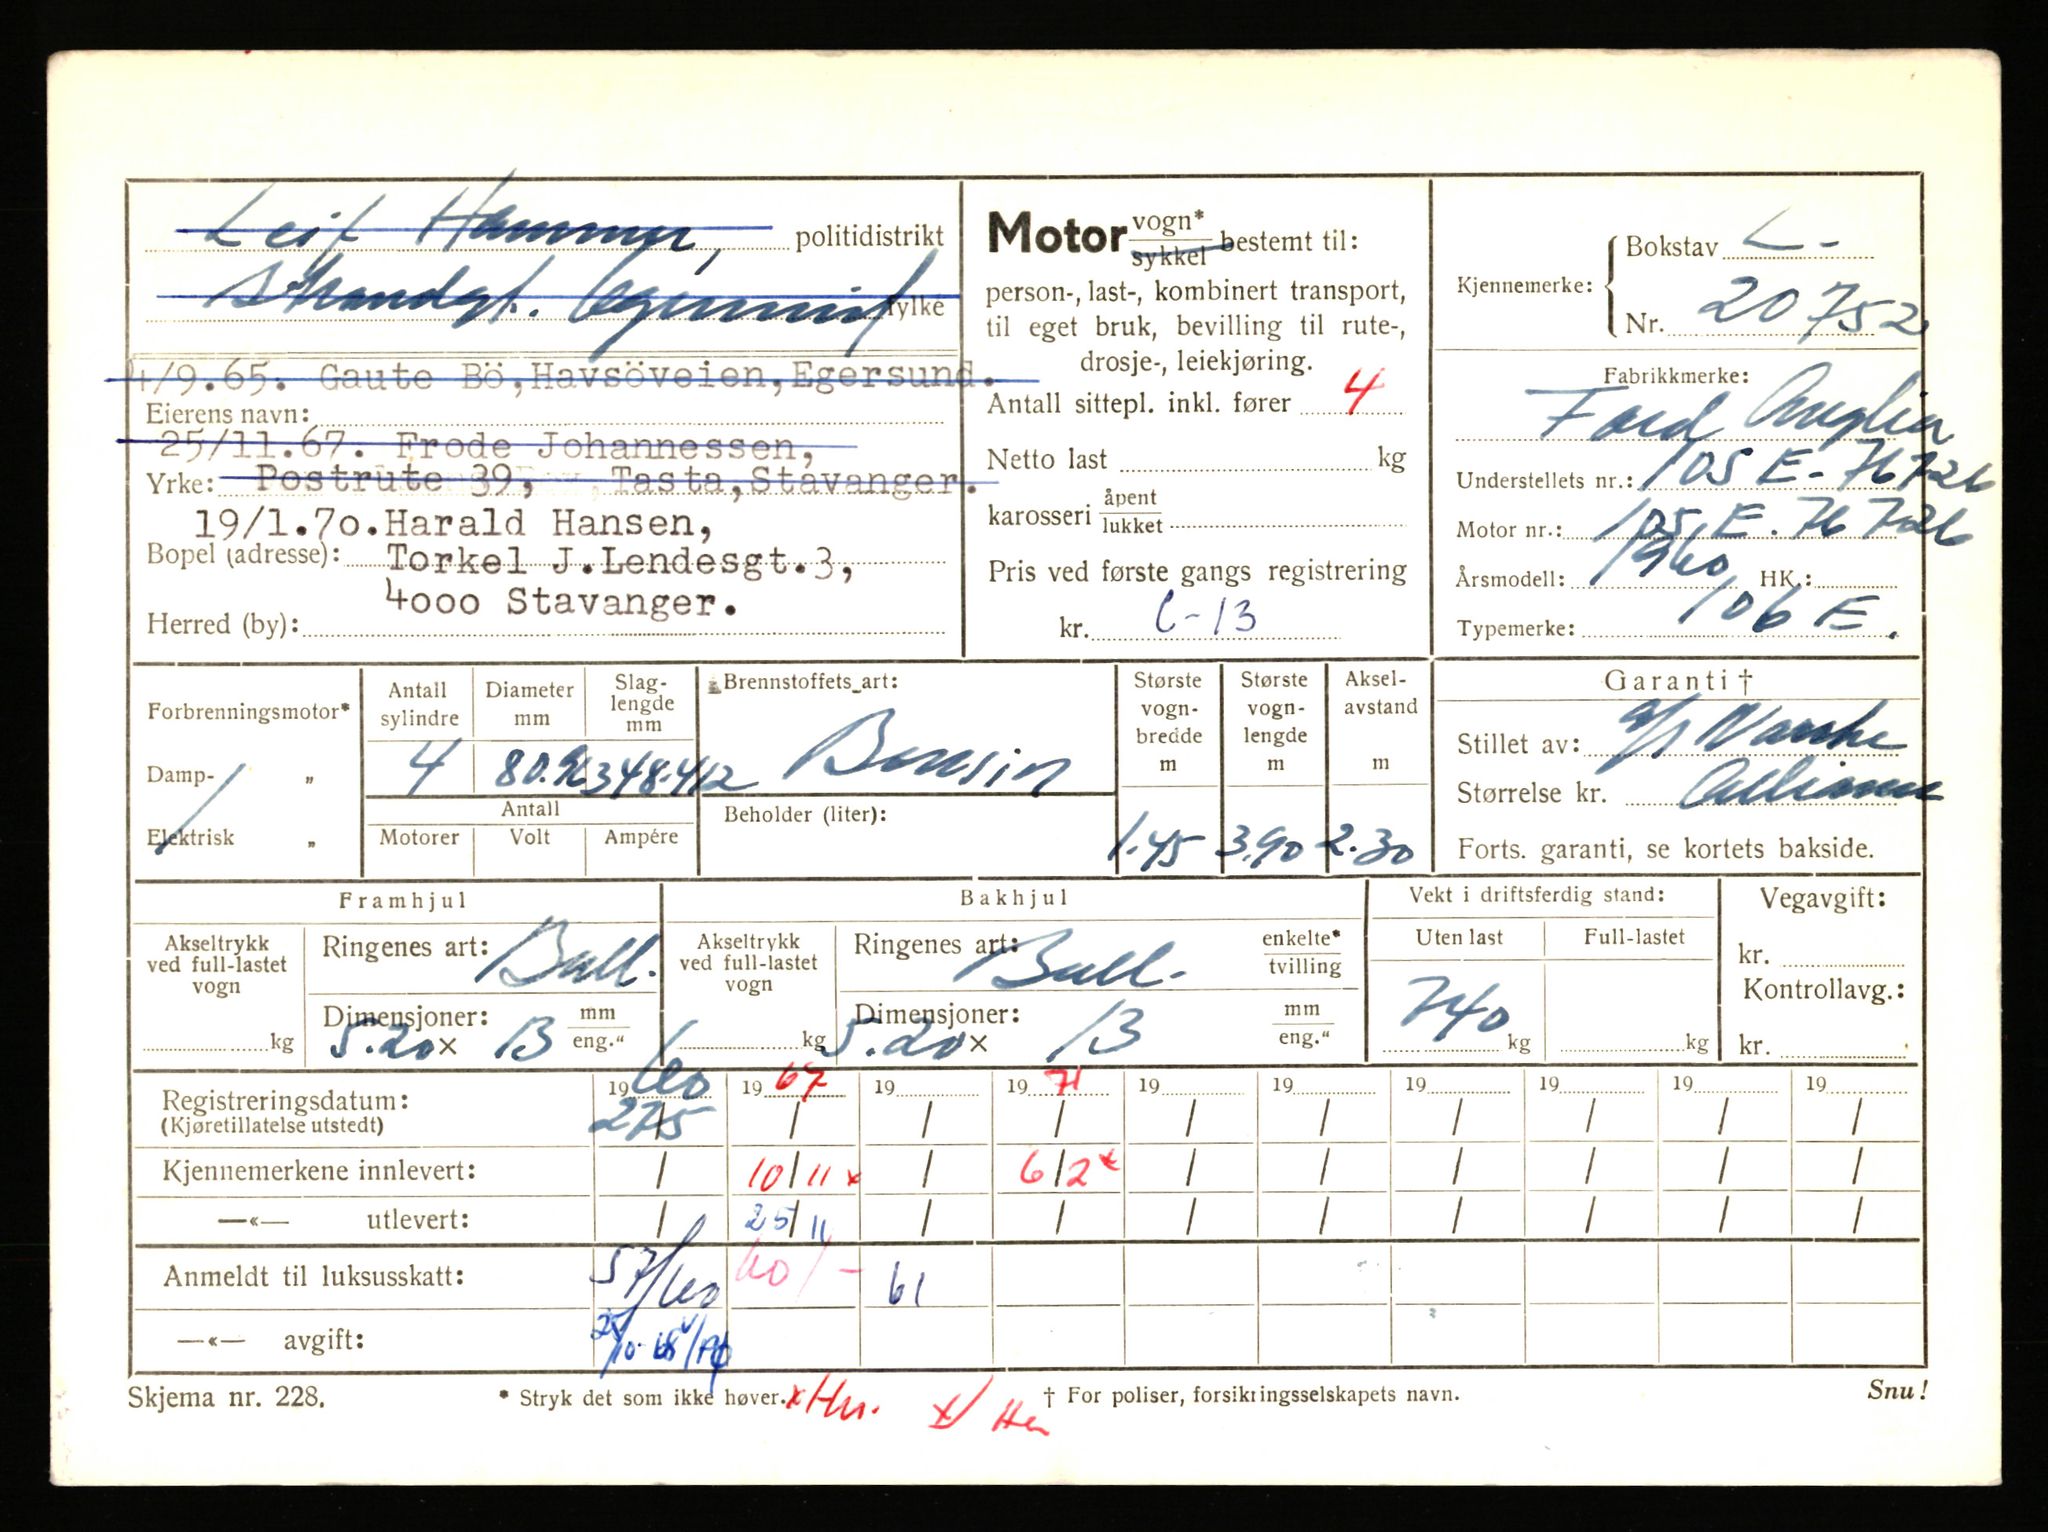 Leif Hammer, politidistrikt
Strandgt. Egersund fylke
4/9.65. Gaute Bö, Havsöveien, Egersund.
Eierens navn:
25/11.67. Frode Johannessen,
Yrke: Postrute 39, Tasta, Stavanger.
19/1.70. Harald Hansen,
Bopel (adresse): Torkel J. Lendesgt. 3,
4000 Stavanger.
Herred (by):
Motor vogn* sykkel bestemt til:
person-, last-, kombinert transport,
til eget bruk, bevilling til rute-,
drosje-, leiekjøring.
Antall sittepl. inkl. fører 4
Netto last kg
karosseri åpent lukket
Pris ved første gangs registrering
kr. C-13
Kjennemerke: Bokstav L-
Nr. 20752
Fabrikkmerke:
Ford Anglia
Understellets nr.: 105 E-76726
Motor nr.: 105 E. 76726
Årsmodell: 1960 HK.:
Typemerke: 106 E.
Forbrenningsmotor*
Damp- „
Elektrisk „
Antall sylindre 4
Diameter mm 80.963
Slaglengde mm 48.412
Antall
Motorer Volt Ampére
Brennstoffets art:
Bensin
Beholder (liter):
Største vognbredde m 1.45
Største vognlengde m 3.90
Akselavstand m 2.30
Garanti †
Stillet av: A/S Norske
Størrelse kr. Alliance
Forts. garanti, se kortets bakside.
Framhjul
Akseltrykk ved full-lastet vogn kg
Ringenes art: Ball.
Dimensjoner: mm eng."
5.20 x 13
Bakhjul
Akseltrykk ved full-lastet vogn kg
Ringenes art: Ball. enkelte* tvilling
Dimensjoner: mm eng."
5.20 x 13
Vekt i driftsferdig stand:
Uten last Full-lastet
740 kg kg
Vegavgift:
kr.
Kontrollavg.:
kr.
19 60 19 67 19 19 71 19 19 19 19 19 19
Registreringsdatum: 27/5 / / / / / / / / /
(Kjøretillatelse utstedt)
Kjennemerkene innlevert: / 10/11 x / 6/2 x / / / / / /
—«— utlevert: / 25/11 / / / / / / / /
Anmeldt til luksusskatt: 57/60 60/- 61
—«— avgift:
Skjema nr. 228. * Stryk det som ikke høver. † For poliser, forsikringsselskapets navn. Snu!